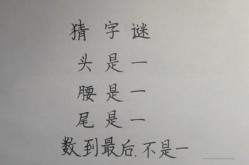 猜字谜
头是一
腰是一
尾是一
数到最后.不是一